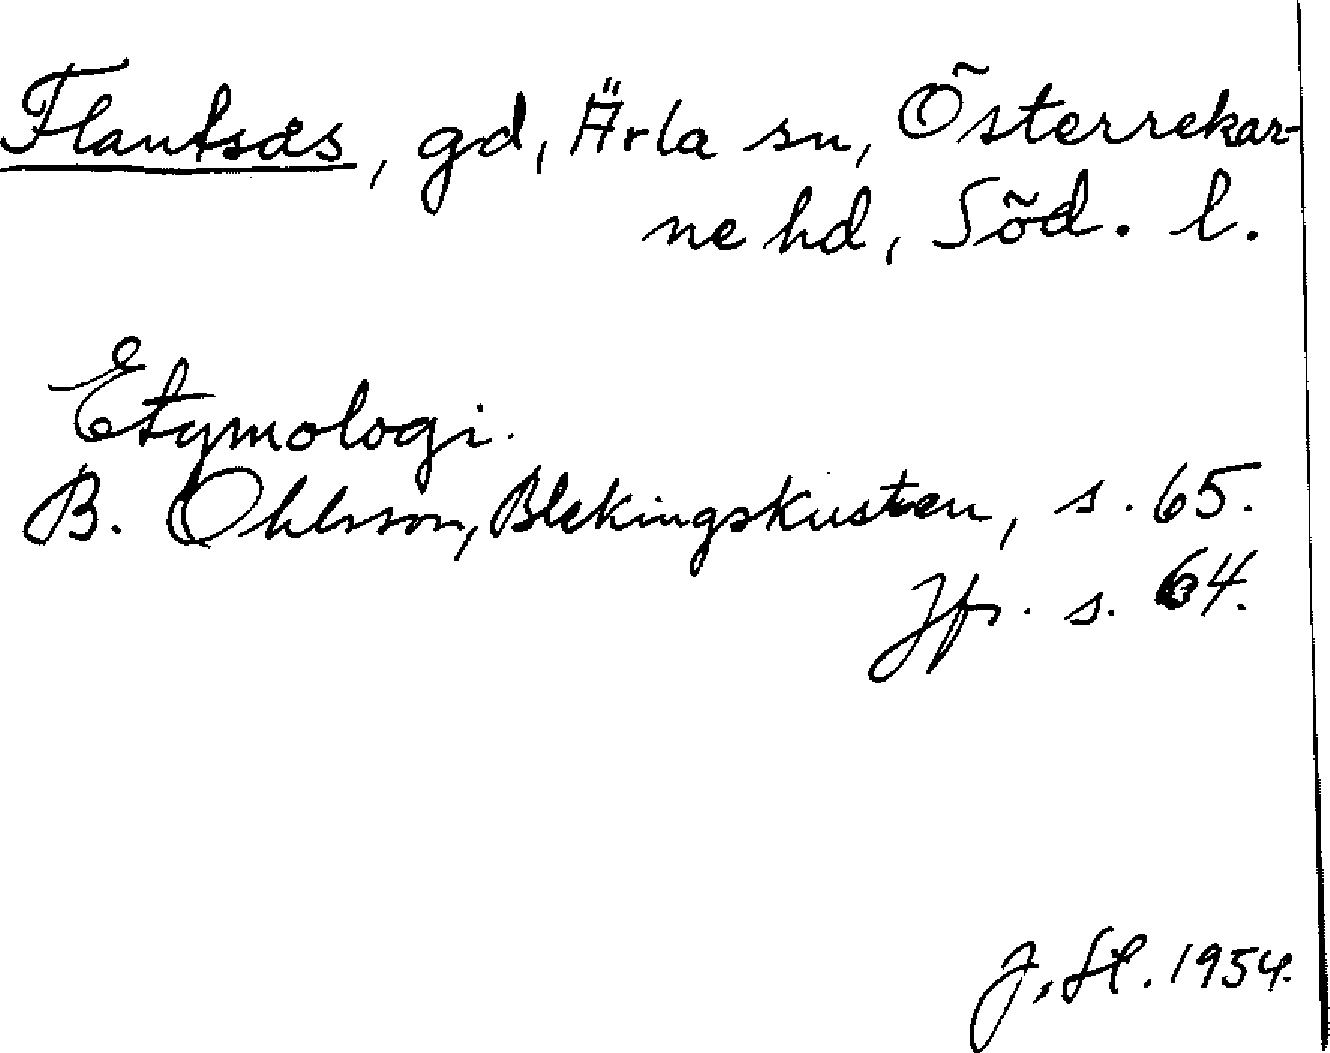 Flantsäs, gd, Ärla sn, Österrekar-
ne hd, Söd. l.
Etymologi.
B. Ohlsson, Blekingskusten, s. 65.
Jfr. s. 64.
J. St. 1954.